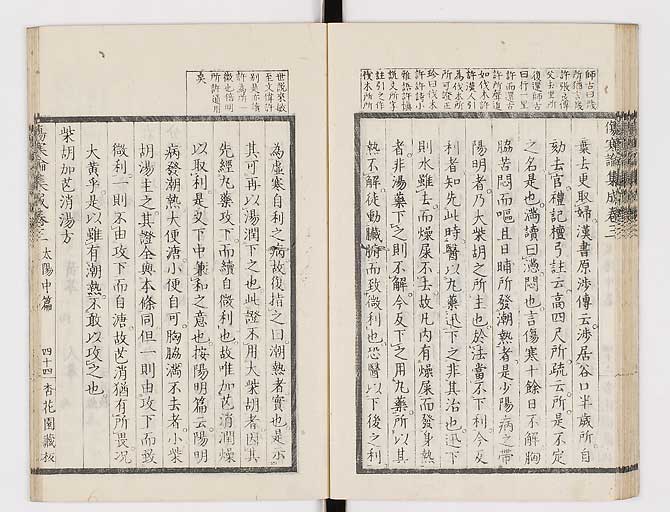 師古曰幾
所猶言幾
許張
父去里所
復還師古
曰行一里
許而還古
許所聲
如伐木許
許漢人引
為伐木所
所可證正
珍曰伐木
許許詩小
雅許慎
説文所字
註引之作
伐木所所
棄去更取婦漢書原渉傳云渉居谷口半歲所自
劾去官禮記檀弓註云高四尺所疏云所是不定
之名是也滿讀曰懣悶也言傷寒十餘日不解胸
脇苦悶而嘔且日晡所發潮熱者是少陽病之帶
陽明者乃大柴胡之所主也於法當不下利今反
利者知先此時醫以丸藥迅下之非其治也迅下
則水雖去而燥屎不去故凡内有燥屎而發身熱
者非湯藥下之則不解今反下之用丸藥所以其
熱不解徒動臟腑而致微利也恐醫以下後之利
傷寒論集成卷三
世説
至文許
別是亦讀
許為所一
徵也明
所許通用
矣
為虛寒自利之病故復指之曰潮熱者實也是示
其可再以湯潤下之也此證不用大柴胡者因其
先經丸藥攻下而續自微利也故唯加芒消潤燥
以取利是又下中兼和之意也按陽明篇云陽明
病發潮熱大便溏小便自可胸脇滿不去者小柴
胡湯主之其證全與本條同但一則由攻下而致
微利一則不由攻下而自溏故芒消猶有所畏况
大黃乎是以雖有潮熱不敢以攻之也
柴胡加芒消湯方
傷寒論集成卷三 太陽中篇 四十四 杏花園藏板